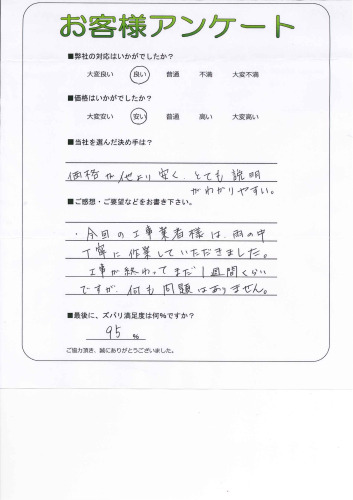 お客様アンケート
■弊社の対応はいかがでしたか？
大変良い 良い 普通 不満 大変不満
■価格はいかがでしたか？
大変安い 安い 普通 高い 大変高い
■当社を選んだ決め手は？
価格が他より安く、とても説明
がわかりやすい。
■ご感想・ご要望などをお書き下さい。
・今回の工事業者様は、雨の中
丁寧に作業していただきました。
工事が終わってまだ1週間くらい
ですが、何も問題はありません。
■最後に、ズバリ満足度は何％ですか？
95 ％
ご協力頂き、誠にありがとうございました。